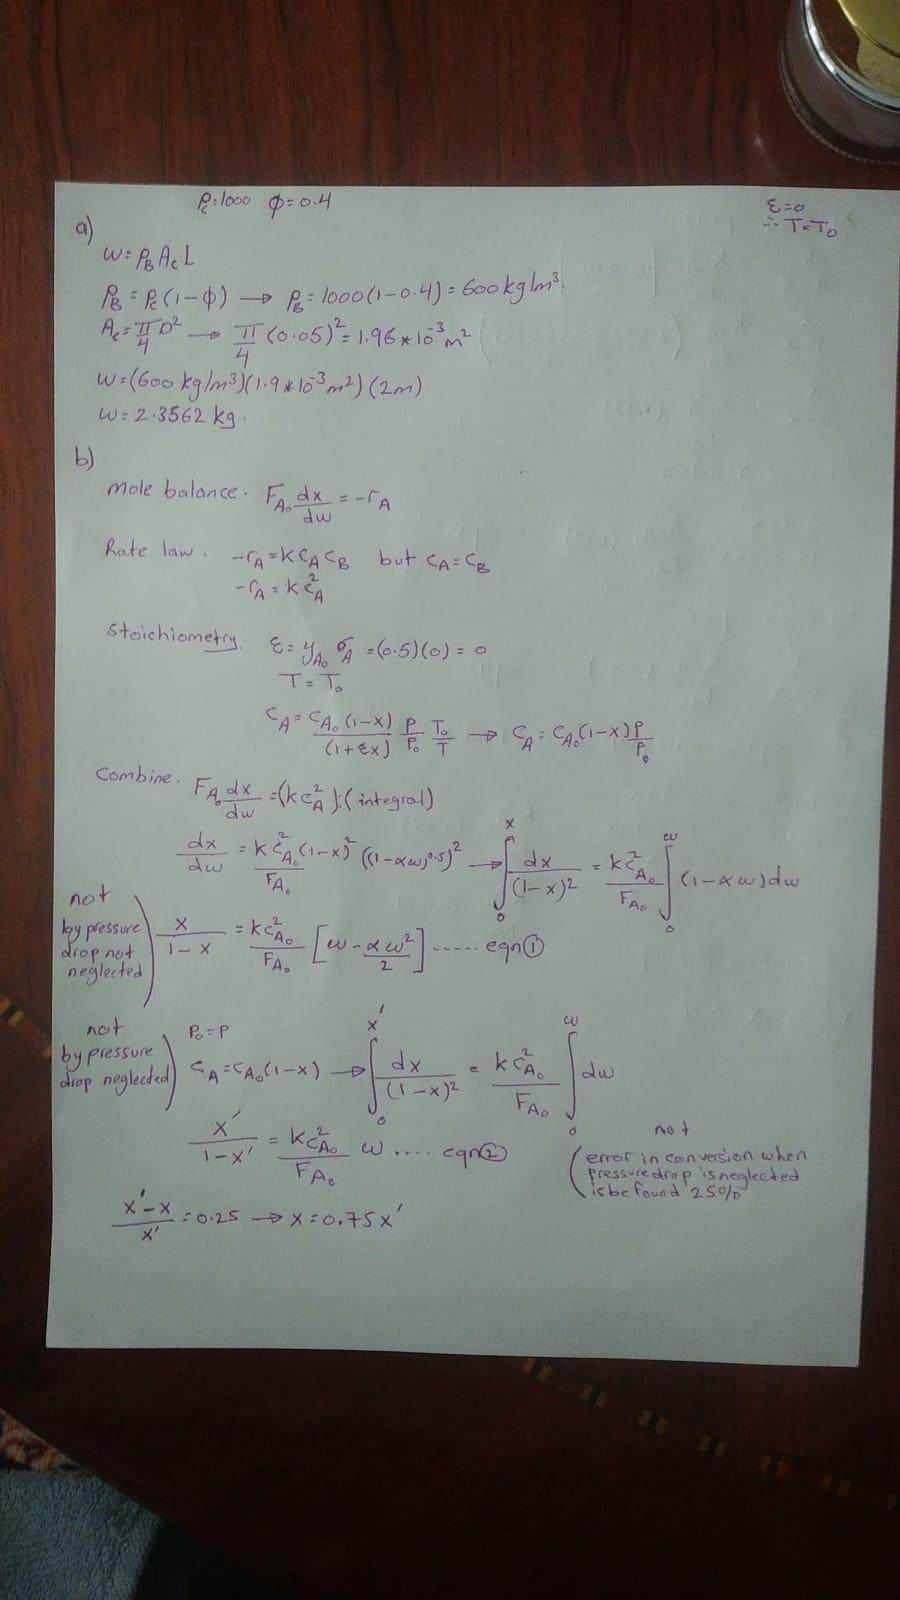 ρc=1000 Φ=0.4
ε=0
∴ T=T₀
a)
W=ρB Ac L
ρB=ρc(1-Φ) → ρB=1000(1-0.4)=600kg/m³.
Ac=π/4 D² → π/4 (0.05)²=1.96*10⁻³m²
W=(600 kg/m³)(1.9*10⁻³m²)(2m)
W=2.3562 kg.
b)
Mole balance. FA₀ dx/dw = -rA
Rate law. -rA=KCACB but CA=CB
-rA=KCA²
Stoichiometry. ε=yA₀ σA=(0.5)(0)=0
T=T₀
CA=CA₀(1-x)/(1+εx) P/P₀ T₀/T → CA=CA₀(1-x)P/P₀
Combine. FA₀ dx/dw =(KCA²):(integral)
dx/dw = KCA₀²(1-x)²/FA₀ ((1-αw)^0.5)² → ∫₀ˣ dx/(1-x)² = KCA₀²/FA₀ ∫₀ʷ (1-αw)dw
not
by pressure
drop not
neglected
x/1-x = KCA₀²/FA₀ [w-αw²/2] ..... eqn①
not
by pressure
drop neglected
P₀=P
CA=CA₀(1-x) → ∫₀ˣ' dx/(1-x)² = KCA₀²/FA₀ ∫₀ʷ dw
x'/1-x' = KCA₀²/FA₀ w .... eqn②
not
error in conversion when
pressure drop is neglected
is be found 25%
x'-x/x' =0.25 → x=0.75x'